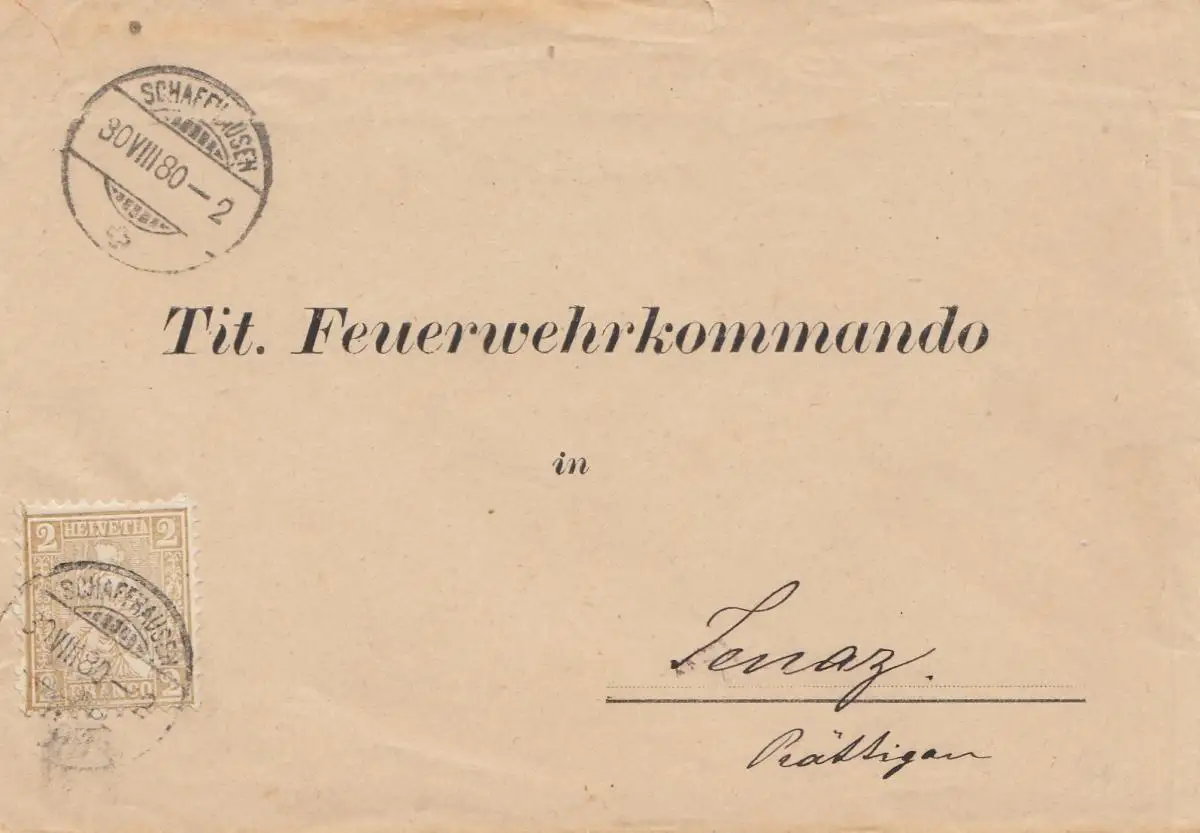 SCHAFFHAUSEN
30 VIII 80 – 2
Tit. Feuerwehrkommando
in
Jenaz.
Prättigau
2 HELVETIA 2
SCHAFFHAUSEN
30 VIII 80 – 2
2 FRANCO 2